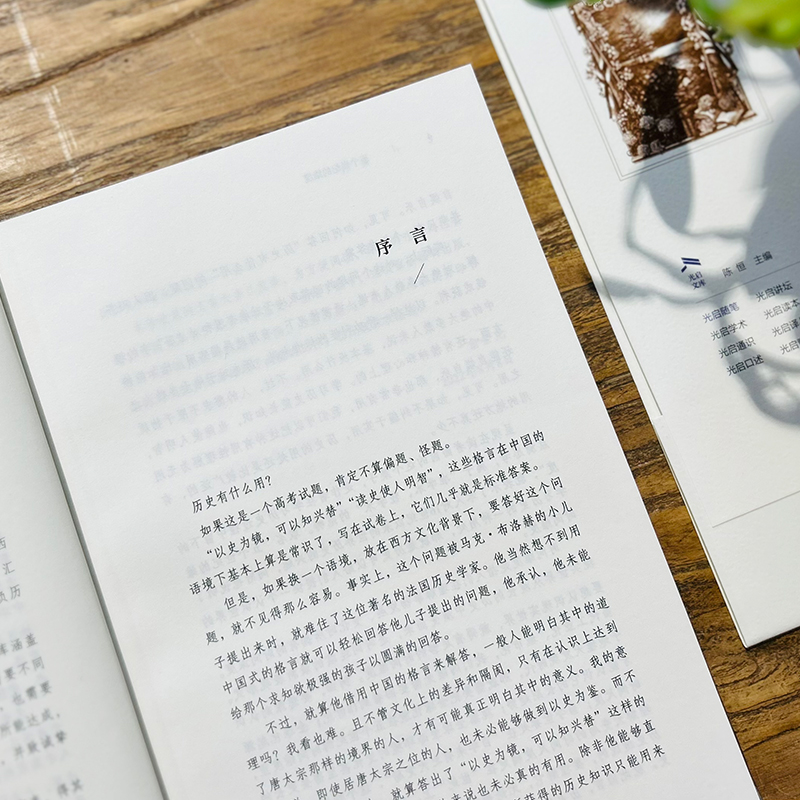 序言
历史有什么用?
如果这是一个高考试题,肯定不算偏题、怪题。
“以史为镜,可以知兴替”“读史使人明智”,这些格言在中国的
语境下基本上算是常识了,写在试卷上,它们几乎就是标准答案。
但是,如果换一个语境,放在西方文化背景下,要答好这个问
题,就不见得那么容易。事实上,这个问题被马克·布洛赫的小儿
子提出来时,就难住了这位著名的法国历史学家。他当然想不到用
中国式的格言就可以轻松回答他儿子提出的问题,他承认,他未能
给那个求知欲极强的孩子以圆满的回答。
不过,就算他借用中国的格言来解答,一般人能明白其中的道
理吗?我看也难。且不管文化上的差异和隔阂,只有在认识上达到
了唐太宗那样的境界的人,才有可能真正明白其中的意义。我的意
即使居唐太宗之位的人,也未必能够做到以史为鉴。而不
就算答出了“以史为镜,可以知兴替”这样的
来说也未必真的有用。除非他能够直
获得的历史知识只能用来
西
汇
员历
库涵盖
要不同
也需要
所能达成,
并致诚挚
光启
文库
陈恒 主编
光启随笔 光启讲坛
光启学术 光启读本
光启通识 光启译
光启口述 光启